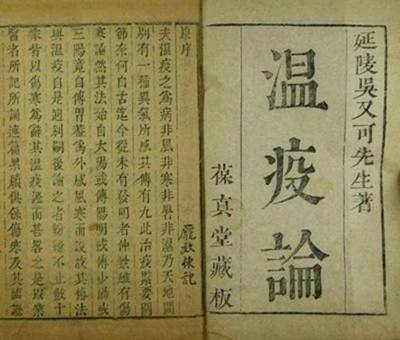 延陵吳又可先生著
温疫論
葆真堂藏板
原序
夫温疫之為病非風非寒非暑非濕乃天地間
別有一種異氣所感其傳有九此治疫緊要關
節奈何自古迄今從未有發明者仲景雖有傷
寒論然其法始自太陽或傳陽明或傳少陽或
三陽竟自傳胃蓋為外感風寒而設故其傳法
與温疫自是迥別嗣後論之者紛紛不止數十
家皆以傷寒為辭其温疫證而甚畧之是以業
醫者所記所誦連篇累牘俱係傷寒及其臨證